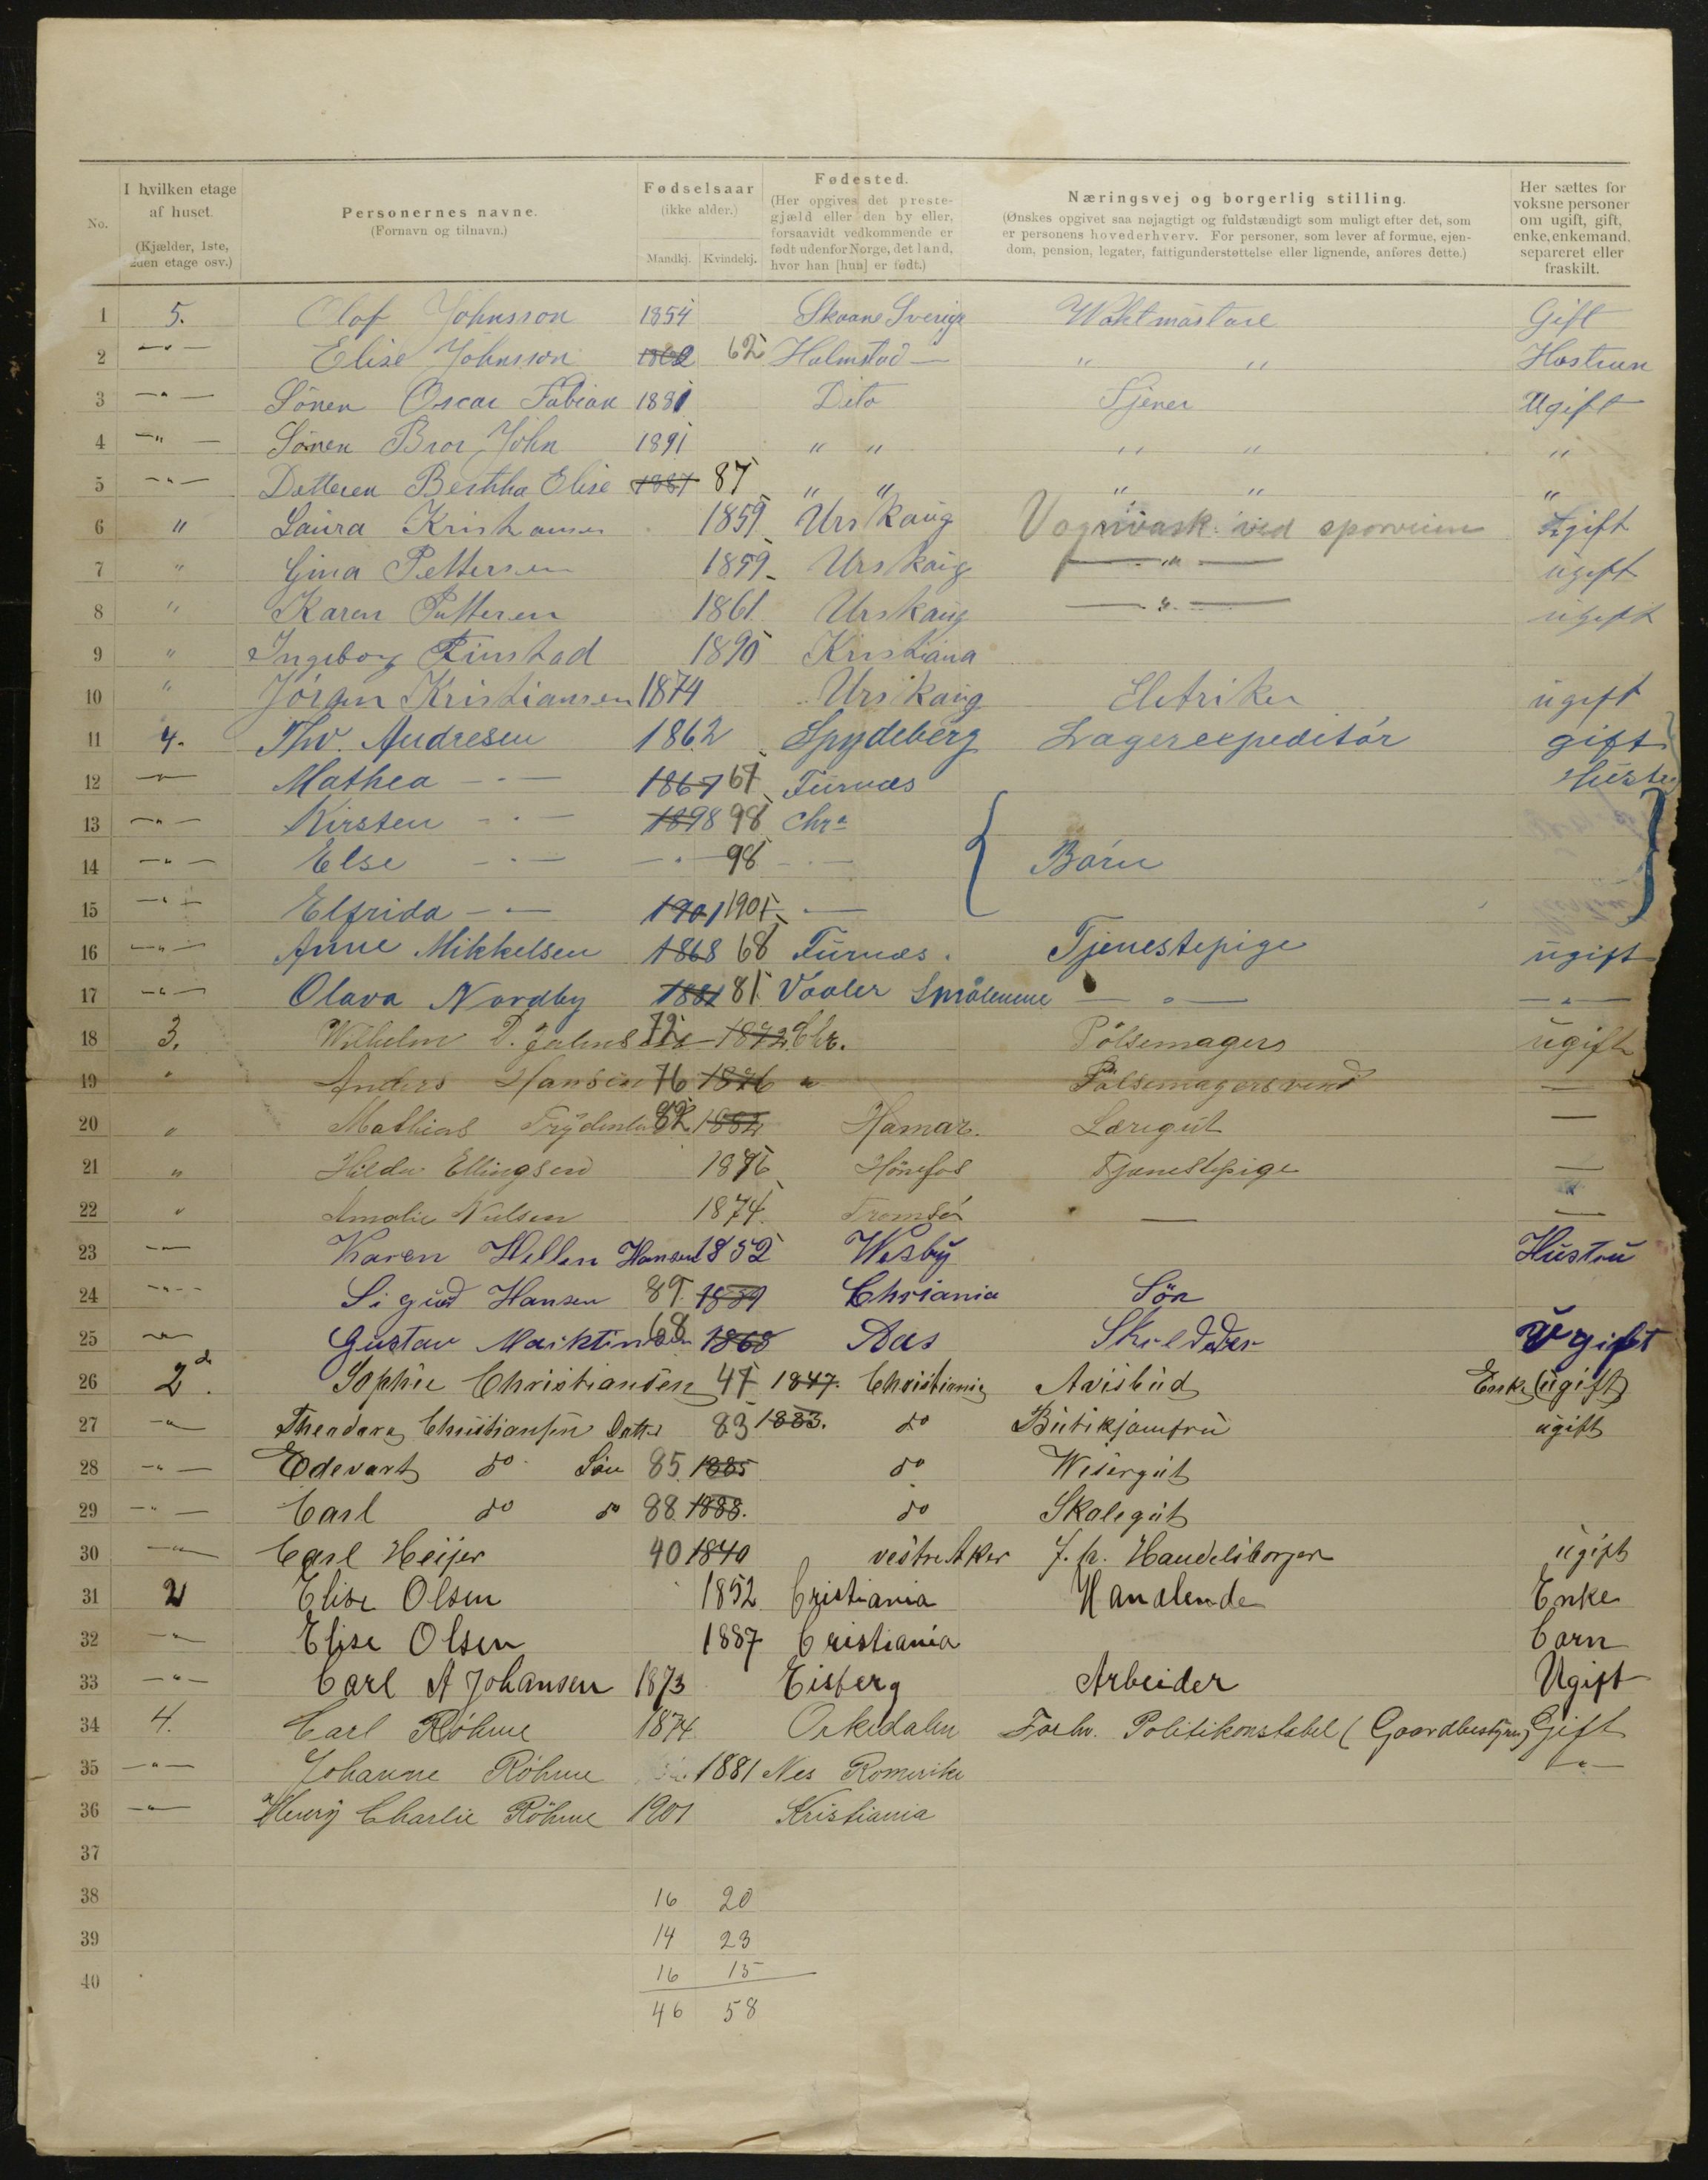 No.
I hvilken etage af huset.
(Kjælder, 1ste, 2den etage osv.)
Personernes navne.
(Fornavn og tilnavn.)
Fødselsaar
(ikke alder.)
Mandkj. Kvindekj.
Fødested.
(Her opgives det prestegjæld eller den by eller, forsaavidt vedkommende er født udenfor Norge, det land, hvor han [hun] er født.)
Næringsvej og borgerlig stilling.
(Ønskes opgivet saa nøjagtigt og fuldstændigt som muligt efter det, som er personens hovederhverv. For personer, som lever af formue, ejendom, pension, legater, fattigunderstøttelse eller lignende, anføres dette.)
Her sættes for voksne personer om ugift, gift, enke, enkemand, separeret eller fraskilt.
1 5. Olof Johnsson 1854 Skaane Sverige Waktmästare Gift
2 — " — Elise Johnsson 1862 62 Halmstad — " " Hustrun
3 — " — Sönen Oscar Fabian 1881 Dito Tjener Ugift
4 — " — Sönen Bror John 1891 " " " " "
5 — " — Dotteren Berthha Elise 1887 87 " " " " "
6 " Laura Kristiansen 1859 Urskaug Vognvask ved sporveien ugift
7 " Gina Pettersen 1859 Urskaug — " — ugift
8 " Karen Pettersen 1861 Urskaug — " — ugift
9 " Ingeborg Rustad 1890 Kristiana
10 " Jörgen Kristiansen 1874 Urskaug Eletriker ugift
11 4. Thv. Andresen 1862 Spydeberg Lagerexpeditör gift
12 — " — Mathea — " — 1867 67 Furnæs Hustru
13 — " — Kirsten — " — 1898 98 Chra
14 — " — Else — " — — " — 98 — " — Børn
15 — " — Elfrida — " — 1901 1901 — " —
16 — " — Anne Mikkelsen 1868 68 Furnæs. Tjenestepige ugift
17 — " — Olava Nordby 1881 81 Vaaler Smålenene — " — — " —
18 3. Wilhelm D. 72 1872 Chr. Pölsemagers ugift
19 " Anders Hansen 76 1876 " Pölsemagersvend —
20 " Mathias 82 1882 Hamar. Læregut —
21 " Hilda Ellingsen 1876 Hönefos Tjenestepige —
22 " Amalie Nielsen 1874 Tromsö — —
23 — " — Karen Hellen Hansen 1852 Wesby Hustru
24 — " — Sigud Hansen 89 1889 Chriania Sön
25 — " — Gustav Marktinsen 68 1868 Aas Skredder Ugift
26 2d. Sophie Christiansen 47 1847. Christiania Avisbud Enke (ugift)
27 — " — Theodora Christiansen Datter 83 1883. do Butikjomfru ugift
28 — " — Edevart do Sön 85 1885 do Wisergut
29 — " — Carl do do 88 1888. do Skolegut
30 — " — Carl Heijer 40 1840 vestre Aker f. h. Handelsborger ugift
31 2 Elise Olsen 1852 Cristiania Handlende Enke
32 — " — Elise Olsen 1887 Cristiania Barn
33 — " — Carl A Johansen 1873 Eisberg Arbeider Ugift
34 4. Carl Röhme 1874 Orkedalen Forhv. Politikonstabel (Gaardbestyrer) Gift
35 — " — Johanne Röhme 1881 Nes Romerike — " —
36 — " — Henry Charlie Röhme 1901 Kristiania
37
38 16 20
39 14 23
40 16 15
46 58